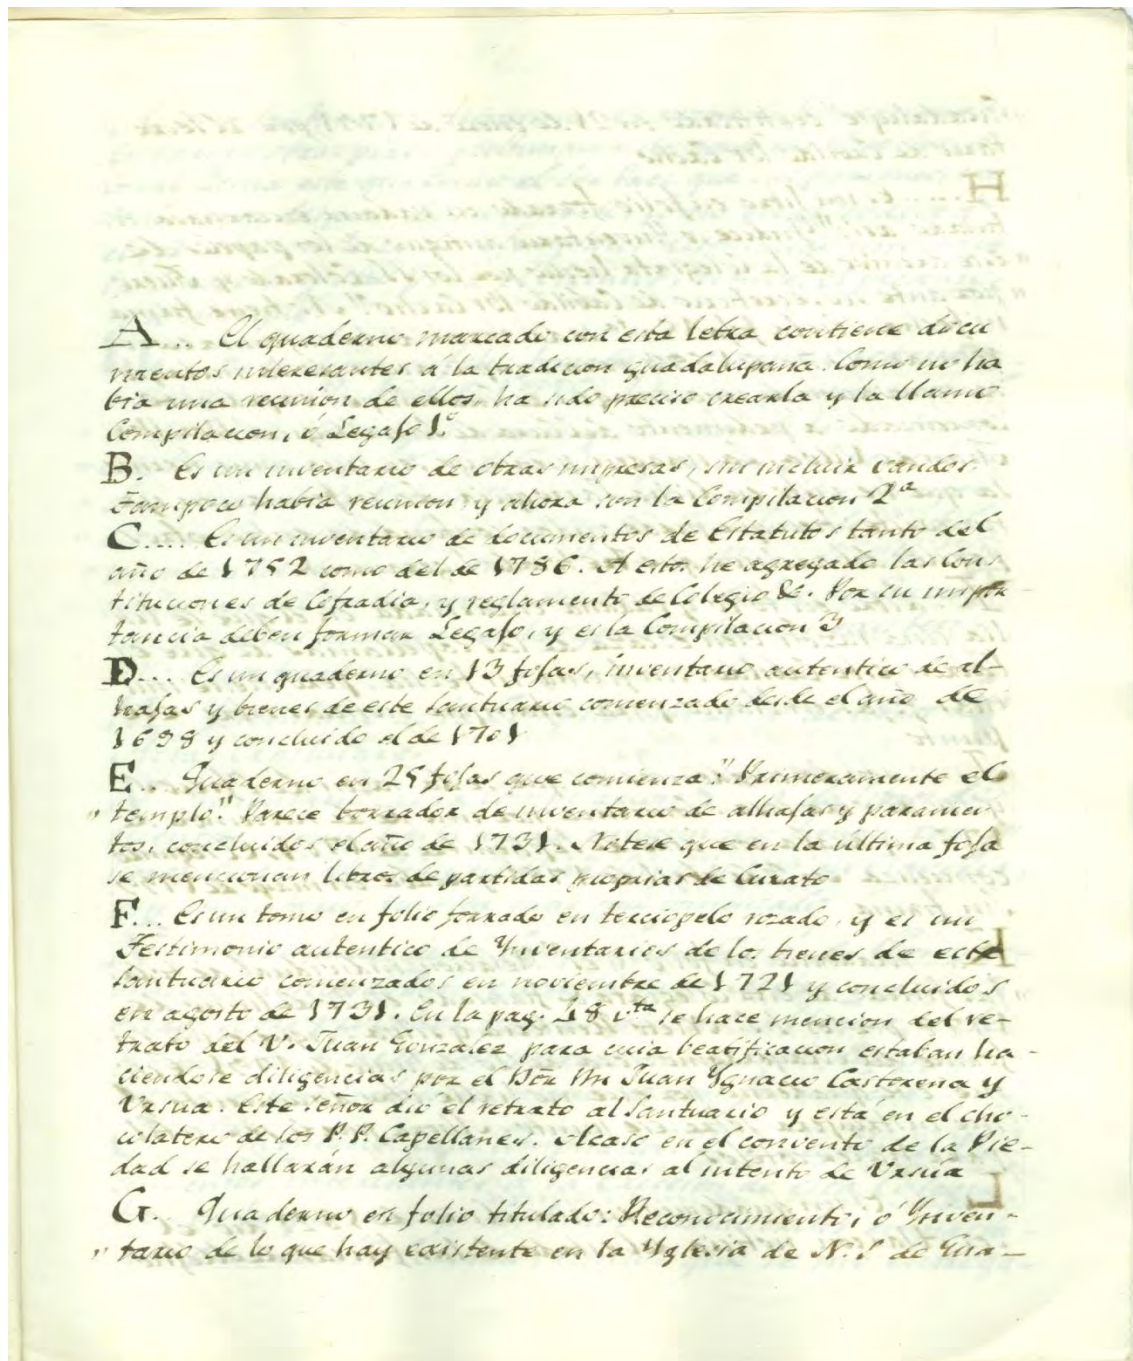 A... El quaderno marcado con esta letra contiene docu
mentos interesantes á la tradicion guadalupana. Como no ha
bia una reunion de ellos, ha sido preciso crearla y la llamo
Compilacion, ó Legajo 1.º
B. Es un inventario de obras impresas, sin incluir vandos.
Tampoco habia reunion, y ahora son la Compilacion 2ª
C.... Es un inventario de documentos de Estatutos tanto del
año de 1752 como del de 1786. A estos he agregado las Cons
tituciones de Cofradia, y reglamento de Colegio &. Por su impor
tancia deben formar Legajo, y es la Compilacion 3
D... Es un quaderno en 13 fojas, inventario autentico de al-
hajas y bienes de este Santuario comenzado desde el año de
1698 y concluido el de 1701
E... Quaderno en 25 fojas que comienza: "Primeramente el
" templo." Parece borrador de inventario de alhajas y paramen
tos, concluidos el año de 1731. Notese que en la última foja
se mencionan libros de partidas proprias de Curato
F... Es un tomo en folio forrado en terciopelo rozado, y es un
Testimonio autentico de Ynventarios de los bienes de este
Santuario comenzados en noviembre de 1721 y concluidos
en agosto de 1731. En la pag. 18 vta se hace mencion del re-
trato del V. Juan Gonzalez para cuia beatificacion estaban ha-
ciendose diligencias por el Dõr Juan Ygnacio Castorena y
Vrsua. Este señor dió el retrato al Santuario y está en el cho-
colatero de los P.P. Capellanes. Acaso en el convento de la Pie-
dad se hallarán algunas diligencias al intento de Vrsúa
G.. Quaderno en folio titulado: Reconocimiento, ó Ynven-
" tario de lo que hay existente en la Yglesia de N. S de Gua-